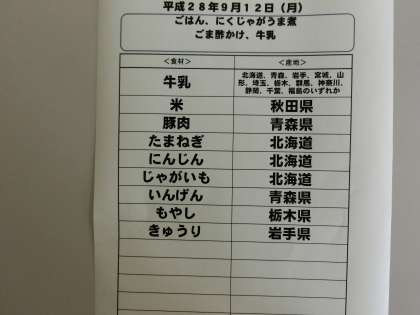 平成２８年９月１２日（月）
ごはん、にくじゃがうま煮
ごま酢かけ、牛乳
＜食材＞ ＜産地＞
牛乳 北海道、青森、岩手、宮城、山
形、埼玉、栃木、群馬、神奈川、
静岡、千葉、福島のいずれか
米 秋田県
豚肉 青森県
たまねぎ 北海道
にんじん 北海道
じゃがいも 北海道
いんげん 青森県
もやし 栃木県
きゅうり 岩手県